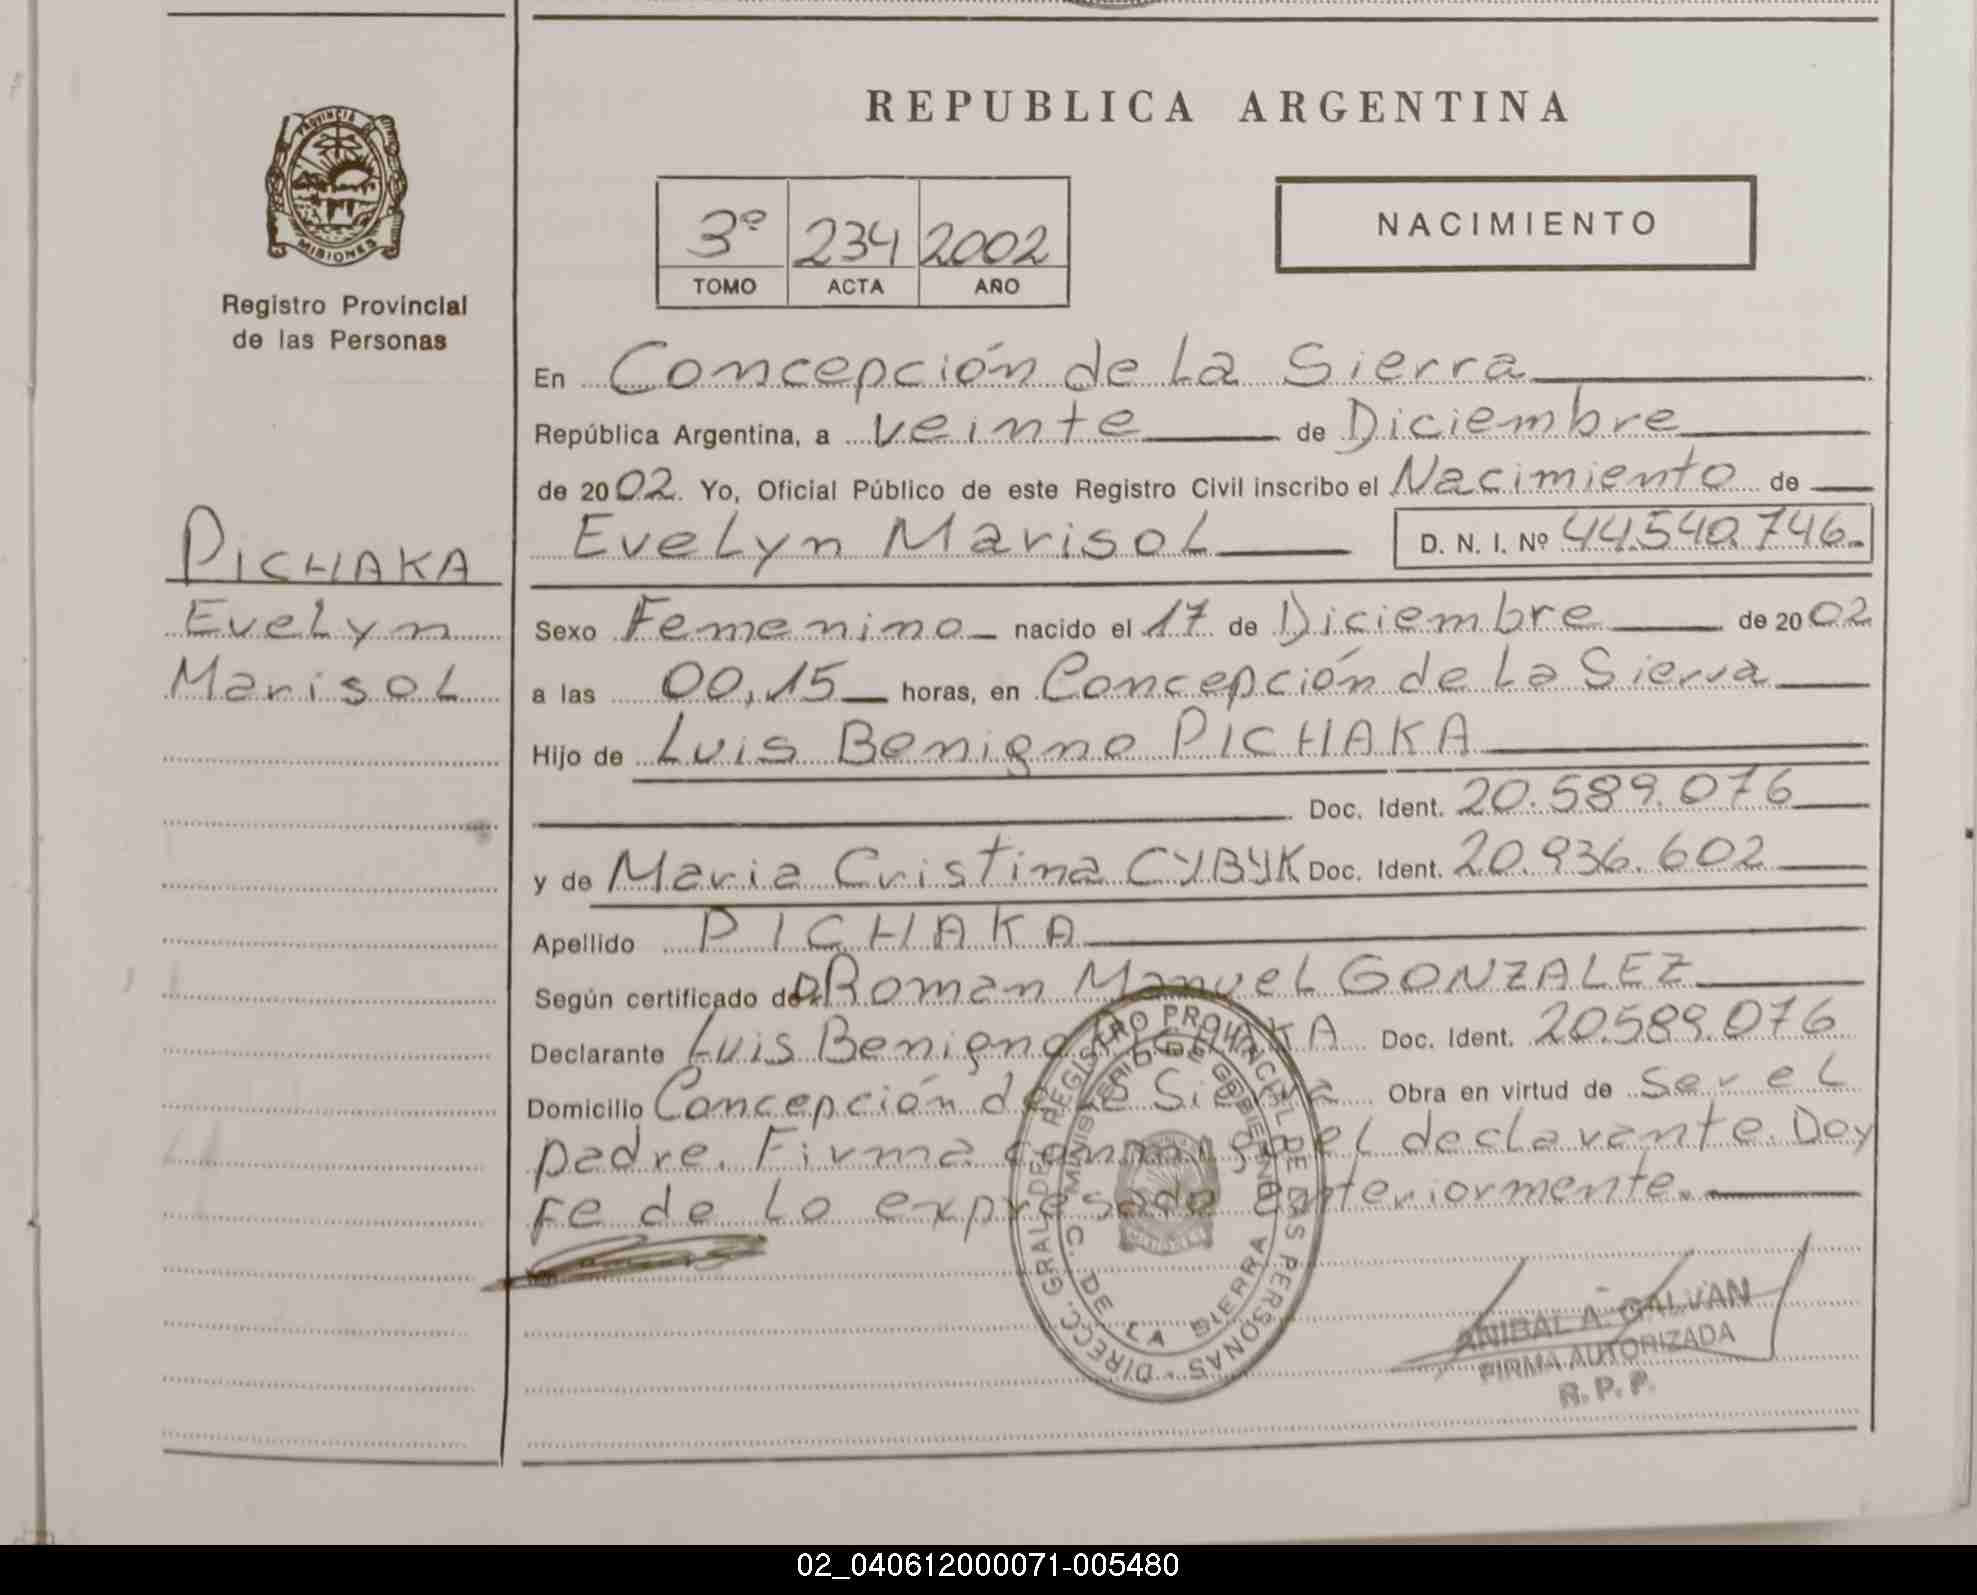 PROVINCIA DE
MISIONES
Registro Provincial
de las Personas
PICHAKA
Evelyn
Marisol
REPUBLICA ARGENTINA
3º 234 2002
TOMO ACTA AÑO
NACIMIENTO
En Concepción de La Sierra
República Argentina, a veinte de Diciembre
de 2002. Yo, Oficial Público de este Registro Civil inscribo el Nacimiento de
Evelyn Marisol D. N. I. Nº 44.540.746.
Sexo Femenino nacido el 17 de Diciembre de 2002
a las 00,15 horas, en Concepción de La Sierra
Hijo de Luis Benigno PICHAKA
Doc. Ident. 20.589.076
y de Maria Cristina CYBYK Doc. Ident. 20.936.602
Apellido PICHAKA
Según certificado de Dr Roman Manuel GONZALEZ
Declarante Luis Benigno PICHAKA Doc. Ident. 20.589.076
Domicilio Concepción de La Sierra Obra en virtud de Ser el
padre. Firma conmigo el declarante. Doy
fe de Lo expresado anteriormente.
DIRECC. GRAL. DEL REGISTRO PROVINCIAL DE LAS PERSONAS
MINISTERIO DE GOBIERNO
C. DE LA SIERRA
MISIONES
ANIBAL A. GALVAN
FIRMA AUTORIZADA
R. P. P.
02_040612000071-005480